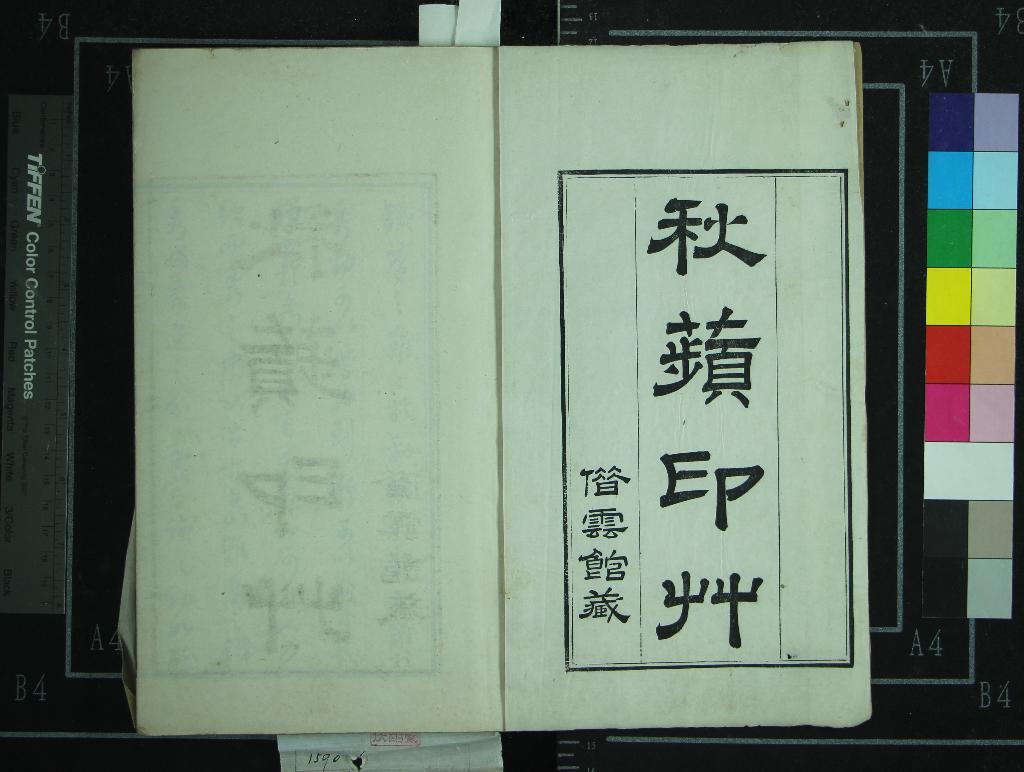 秋蘋印艸
僭雲館藏
TIFFEN Color Control Patches
Blue
Cyan
Green
Yellow
Red
Magenta
White
3/Color
Black
B4
A4
A4
B4
A4
B4
A4
B4
1590